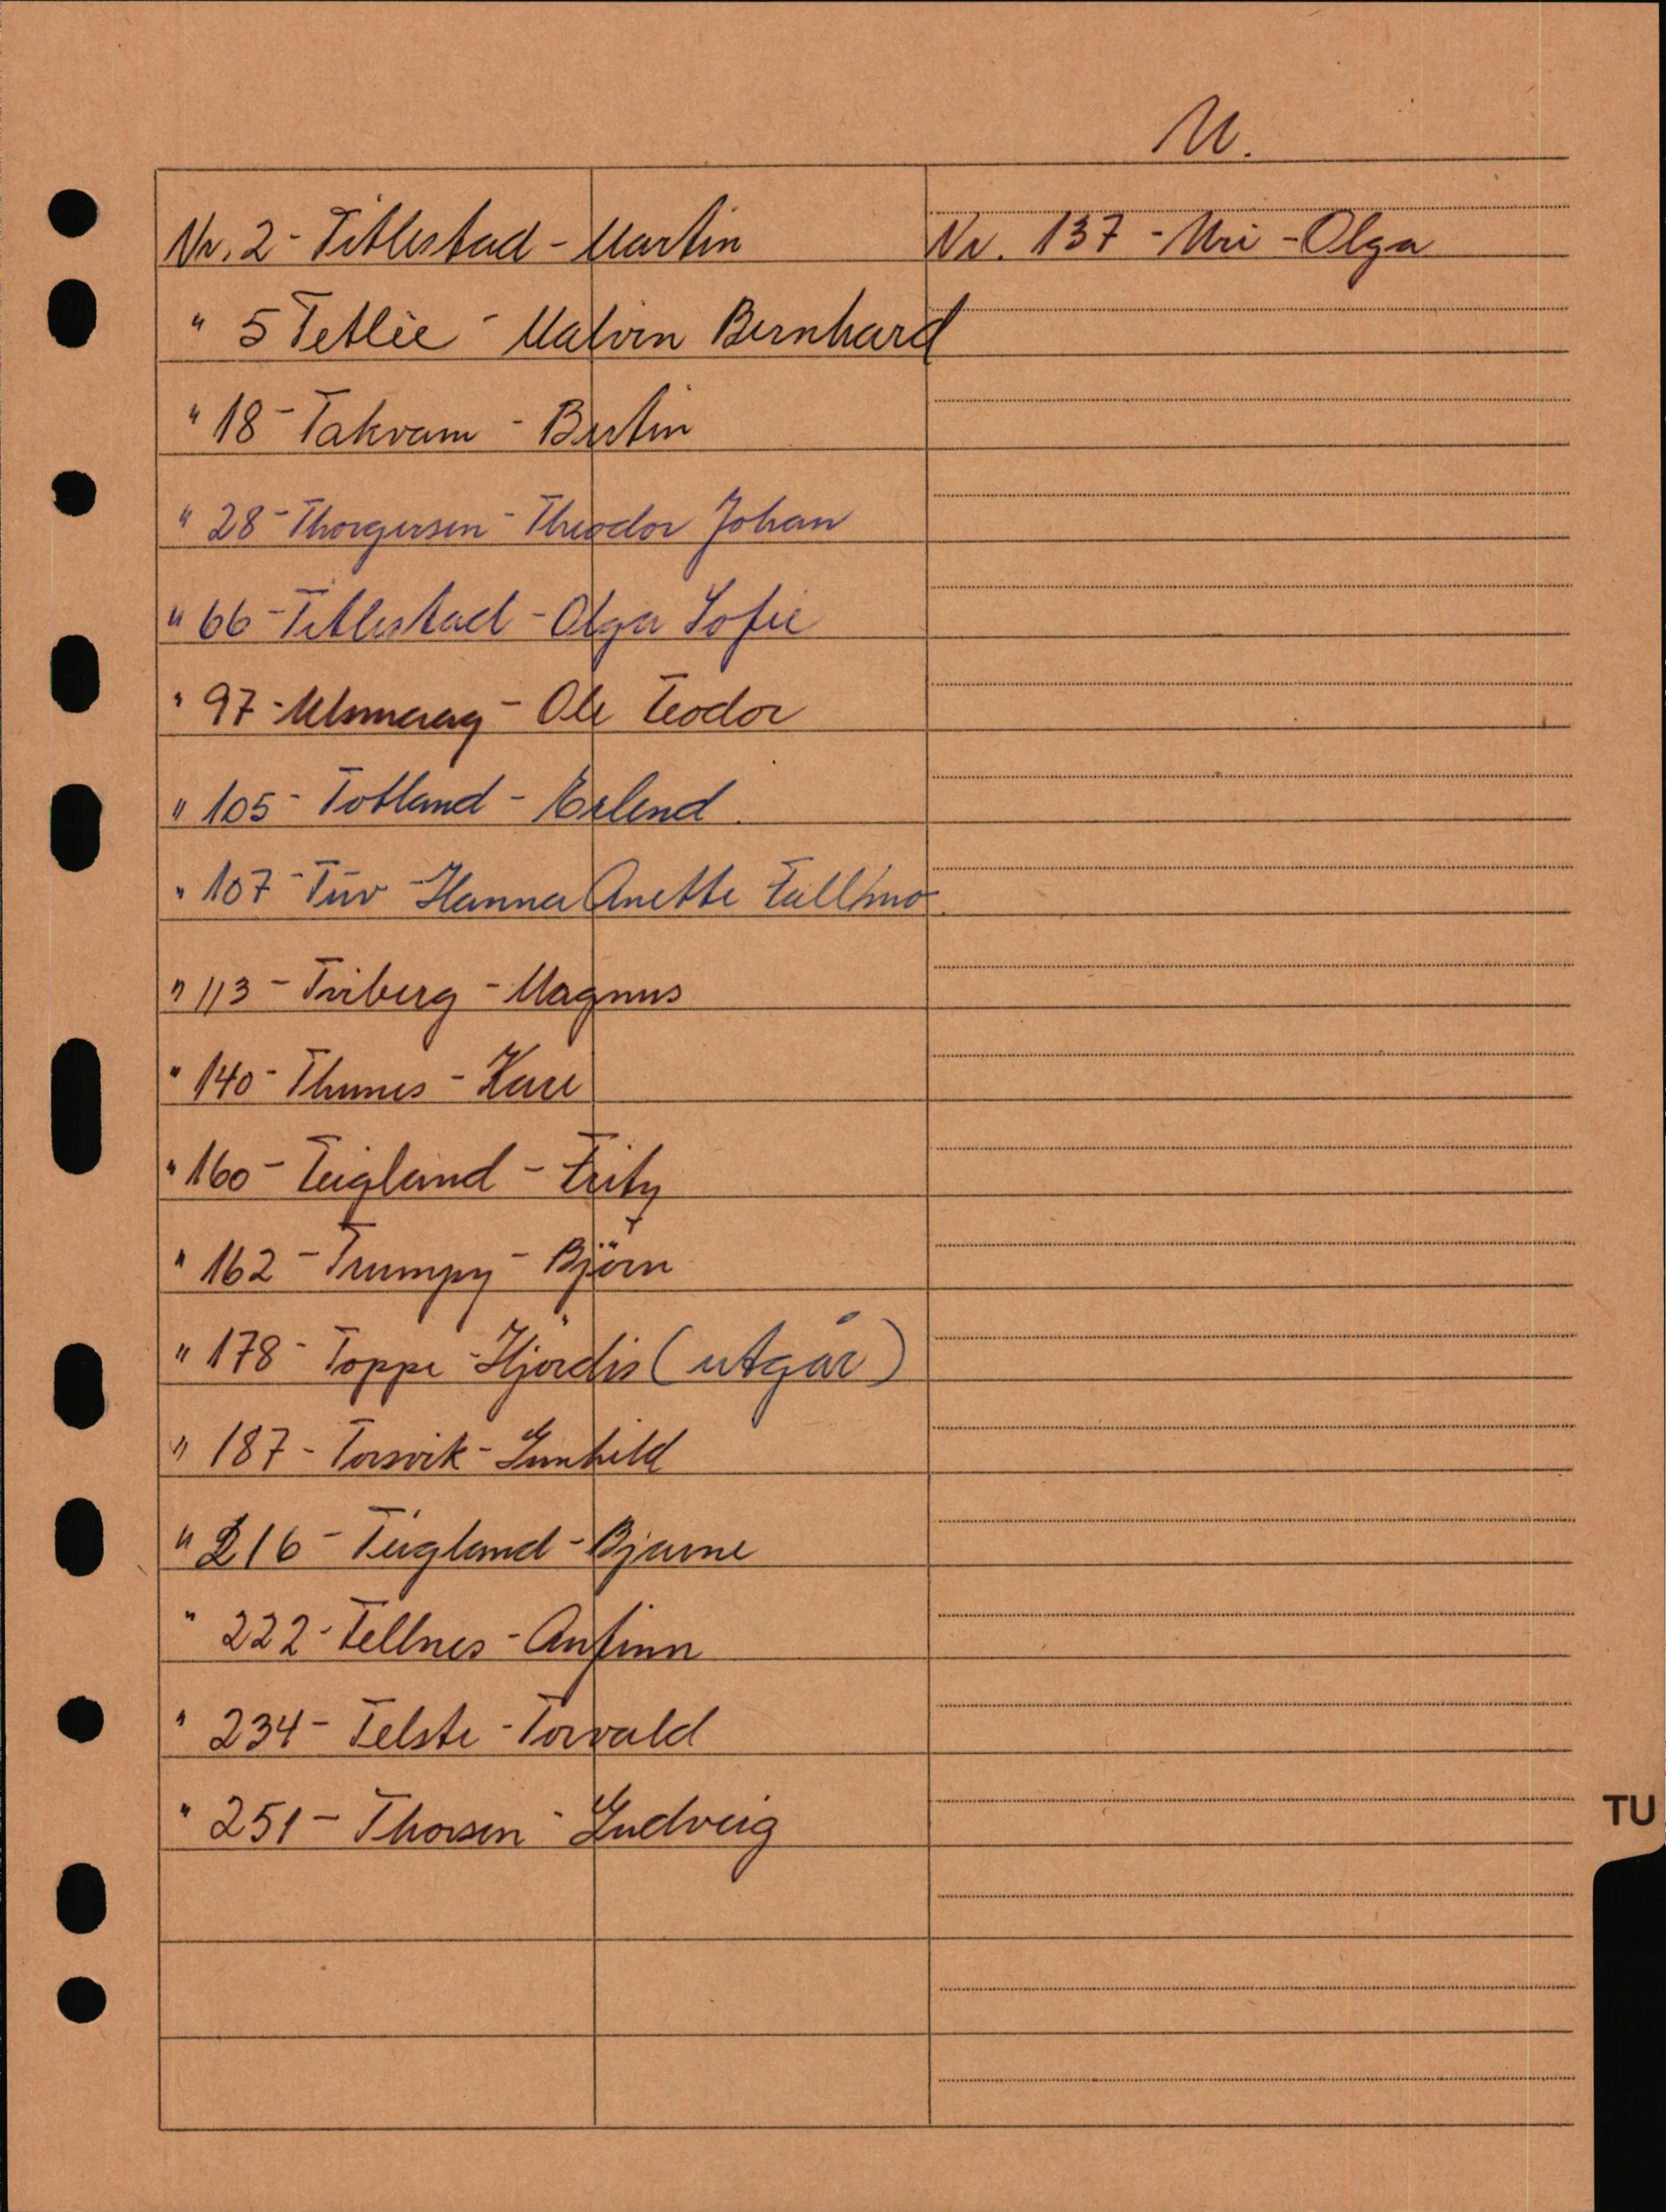 U.
Nr. 2 - Titlestad - Martin
" 5 Tetlie - Malvin Bernhard
" 18 - Takvam - Bertin
" 28 - Thorgersen - Theodor Johan
" 66 - Titlestad - Olga Sofie
" 97 - Ulsmaag - Ole Teodor
" 105 - Totland - Erlend.
" 107 - Tuv - Hanna Anette
" 113 - Triberg - Magnus
" 140 - Thunes - Kare
" 160 - Teigland - Fritz
" 162 - Trumpy - Björn
" 178 - Toppe - Hjördis (utgår)
" 187 - Torsvik - Gunhild
" 216 - Teigland - Bjarne
" 222 - Tellnes - Anfinn
" 234 - Telste - Torvald
" 251 - Thorsen - Ludveig
Nr. 137 - Uri - Olga
TU